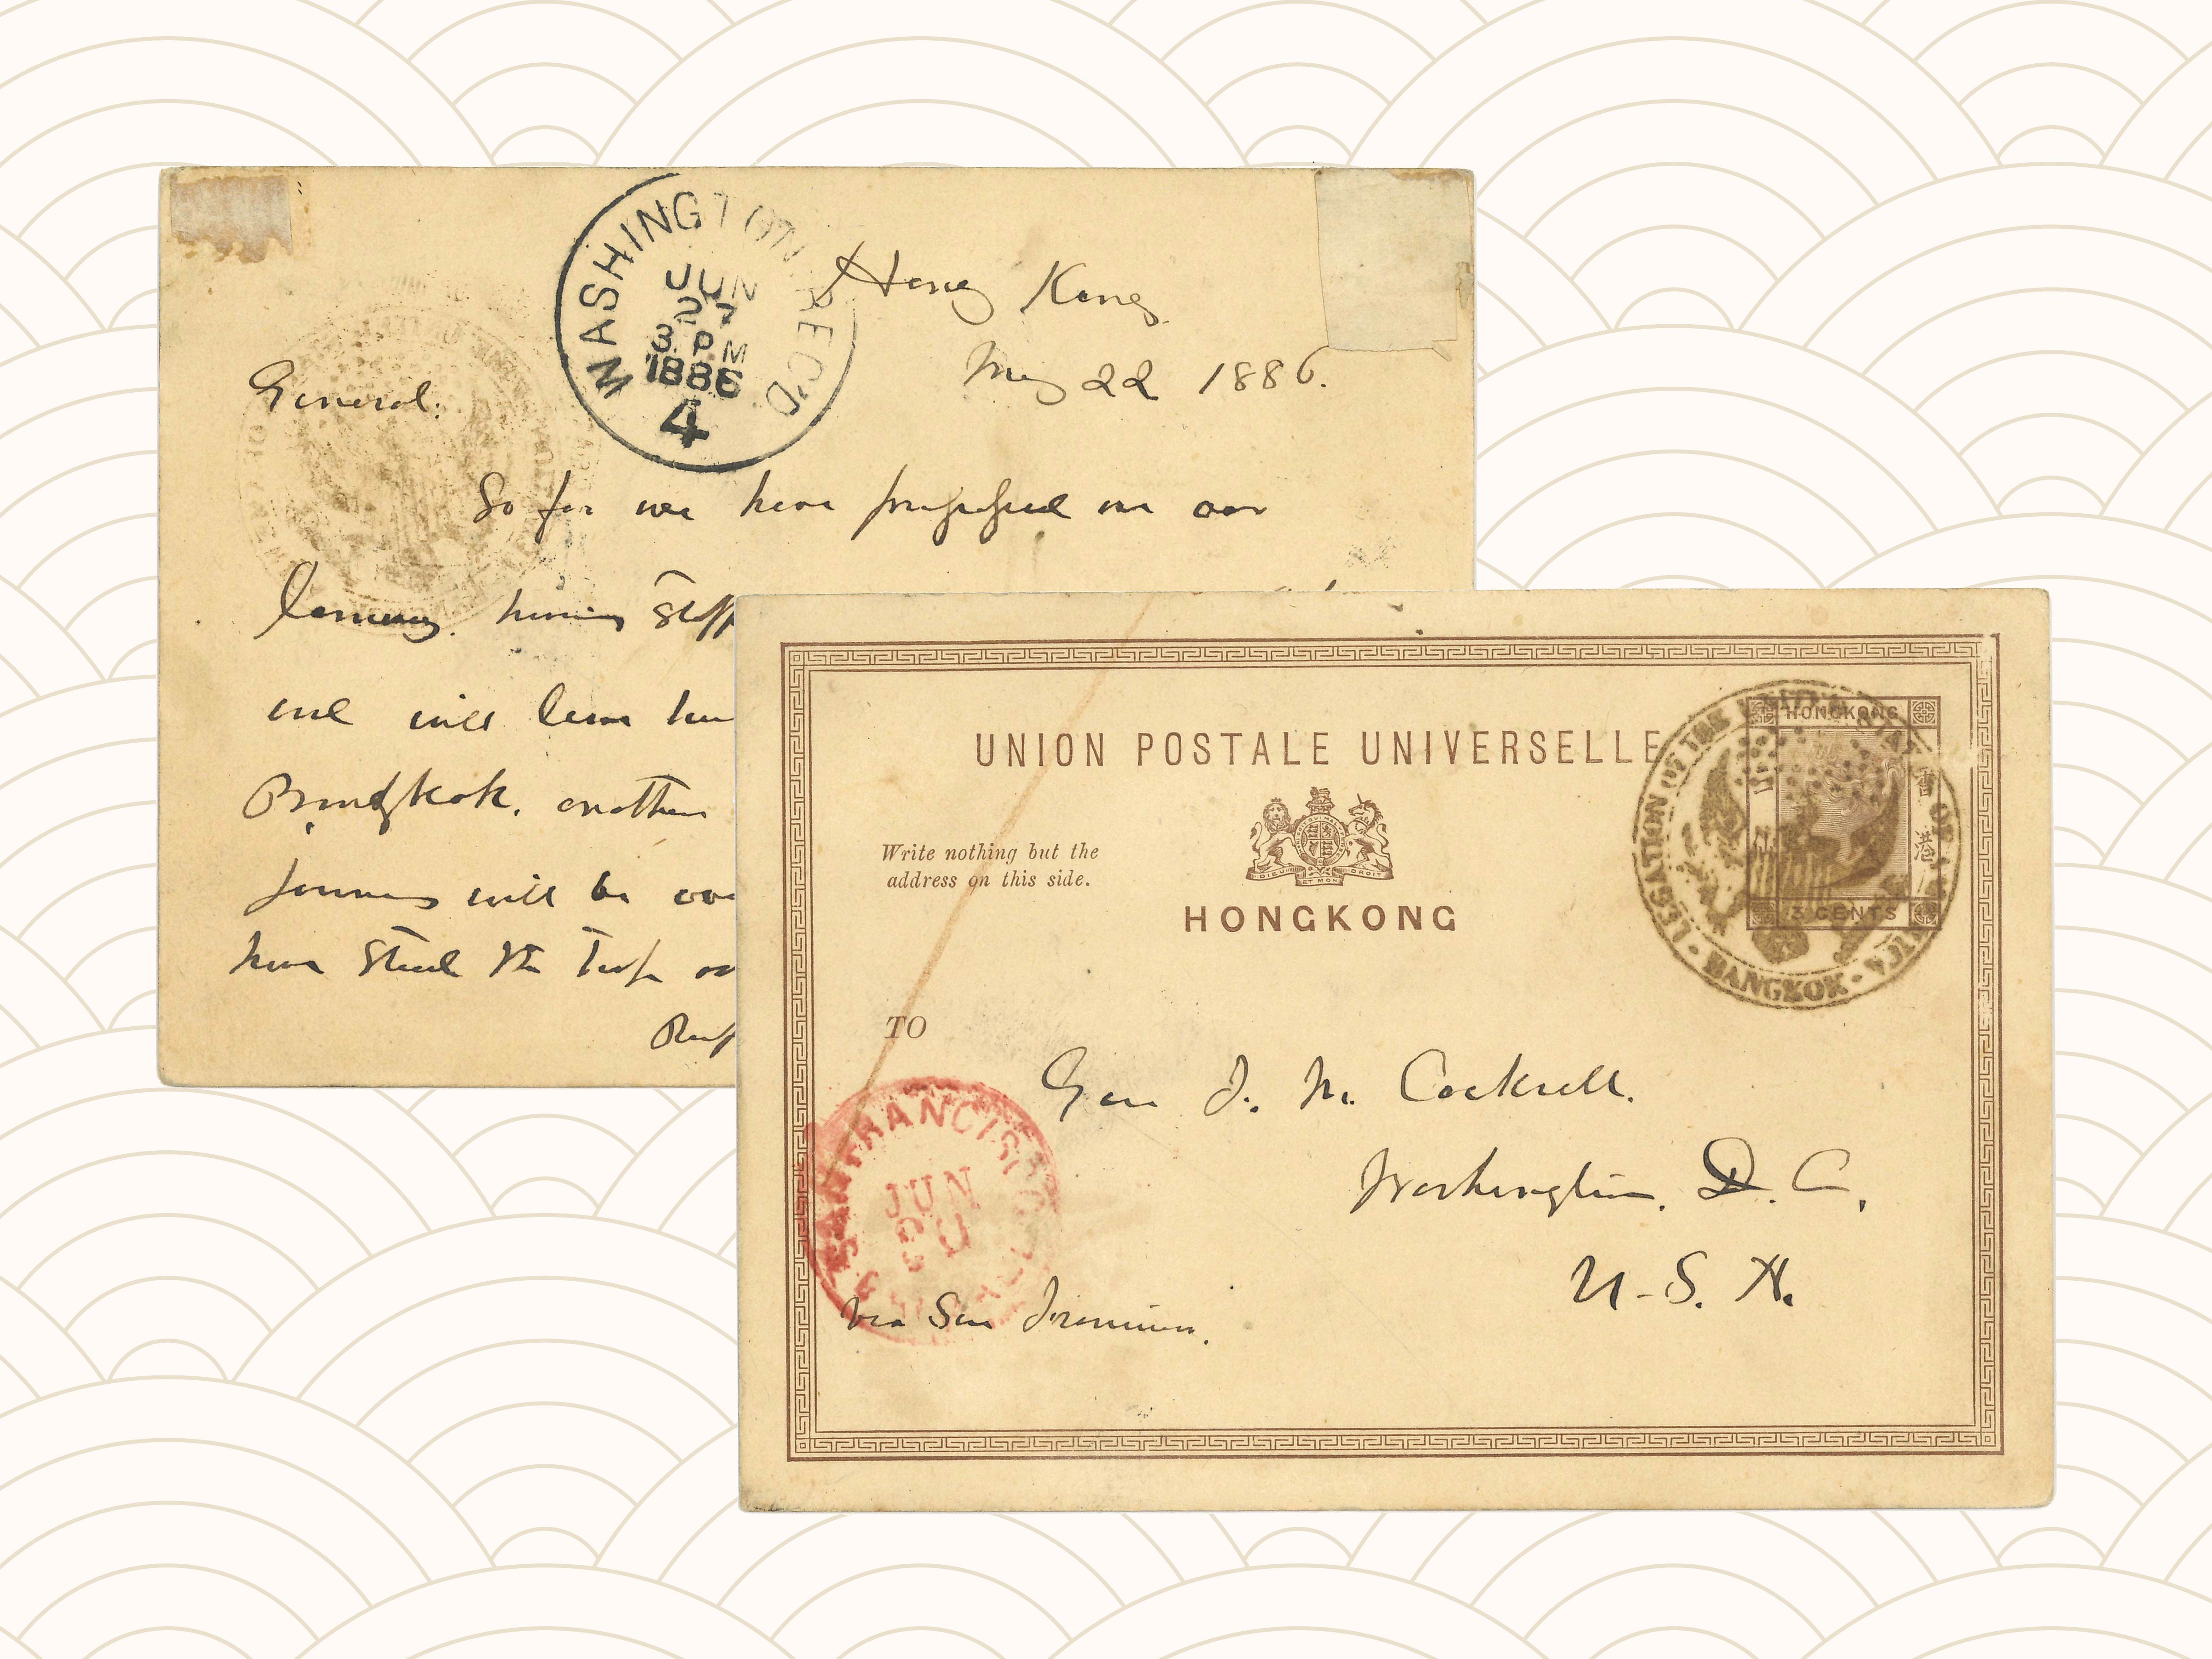 WASHINGTON REC'D
JUN
27
3 PM
1886
4
Hong Kong
May 22 1886.
General:
So far we have progressed on our
journey. having
and will leave
Bangkok. another
journey will be
have stood the trip
UNION POSTALE UNIVERSELLE
Write nothing but the
address on this side.
DIEU ET MON DROIT
HONGKONG
HONGKONG
3 CENTS
LEGATION OF THE UNITED STATES OF AMERICA
· BANGKOK ·
TO
Gen J. M. Cockrell.
Washington. D. C.
U. S. A.
SAN FRANCISCO
JUN
via San Francisco.